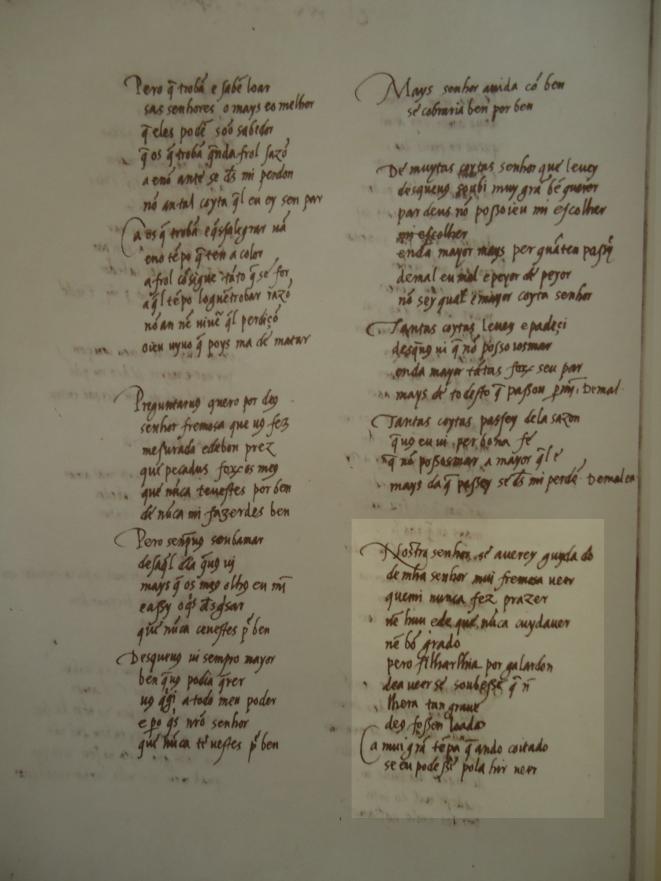 Pero q̄ trobā e sabē loar
sas senhores o mays e o melhor
q̄ eles podē soō sabedor
q̄ os q̄ trobā q̄nda frol sazō
a enō ante se d̄s mi perdon
nō an tal coyta q̄l eu ey sen par
Ca os q̄ trobā e q̄ssalegrar uā
eno tēpo q̄ ten a color
a frol cōsigue tāto q̄ se for
aq̄l tēpo loguētrobar razō
nō an nē uiuē q̄l perdiçō
oieu uyuo q̄ poys ma de matar
Preguntaruꝯ quero por deꝯ
senhor fremosa que uꝯ fez
mesurada e de bon prez
que pecadus foxos meꝯ
que nūca teuestes por ben
de nūca mi fazerdes ben
Pero senp̄uꝯ soubamar
desaq̄l dia q̄uꝯ ui
mays q̄ os meꝯ olhꝯ eu mī
e assy o q̄s d̄s
que nūca teuestes p̄ ben
Desqueuꝯ ui sempro mayor
ben q̄uꝯ podia q̄rer
uꝯ a todo meu poder
e po q̄s nr̄o senhor
que nūca teuestes p̄ ben
Mays senhor auida cō ben
se cobraria ben por ben
De muytas coytas senhor que leuey
desqueuꝯ soubi muy grā bē querer
par deus nō posso ieu mi escolher
mi escolher
enda mayor mays per quāten passey
de mal eu mal e peyor de peyor
nō sey qual e mayor coyta senhor
Tantas coytas leuey e padeci
desq̄uꝯ ui q̄ nō posso osmar
enda mayor tātas foxe seu par
mays de to desto q̄ passou p̄ mī Demal
Tantas coytas passey dela sazon
q̄uꝯ eu ui per bona fe
q̄ nō posso osmar a mayor q̄l e
mays da q̄ passey se d̄s mi perdō Demal eu
Nostro senhor se auerey guysa do
de mha senhor mui fremosa ueer
que mi nunca fez prazer
nē huu e de que nūca cuyd auer
nē bō grado
pero filharlhia por galardon
de a ueer se soubesse q̄ n̄
lhera tan graue
deꝯ fossen loado
Ca mui grā tēpa q̄ ando coitado
se eu podesse pola hir ueer